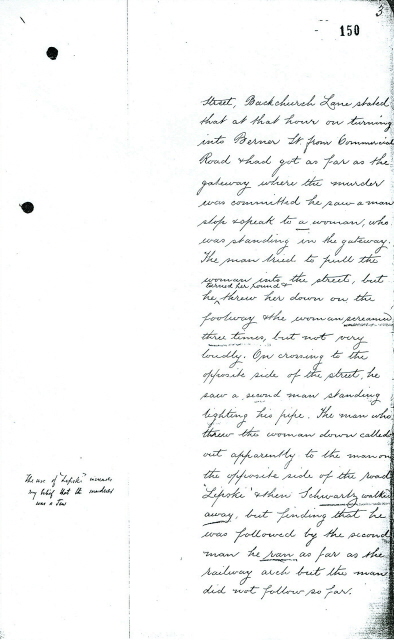 3
150
street, Backchurch Lane stated
that at that hour on turning
into Berner St. from Commercial
Road & had got as far as the
gateway where the murder
was committed he saw a man
stop & speak to a woman, who
was standing in the gateway.
The man tried to pull the
woman into the street, but
turned her round &
he threw her down on the
footway & the woman screamed
three times, but not very
loudly. On crossing to the
opposite side of the street, he
saw a second man standing
lighting his pipe. The man who
threw the woman down called
out apparently to the man on
the opposite side of the road
'Lipski' & then Schwartz walked
away, but finding that he
was followed by the second
man he ran as far as the
railway arch but the man
did not follow so far.
The use of "Lipski" increases
my belief that the murderer
was a Jew